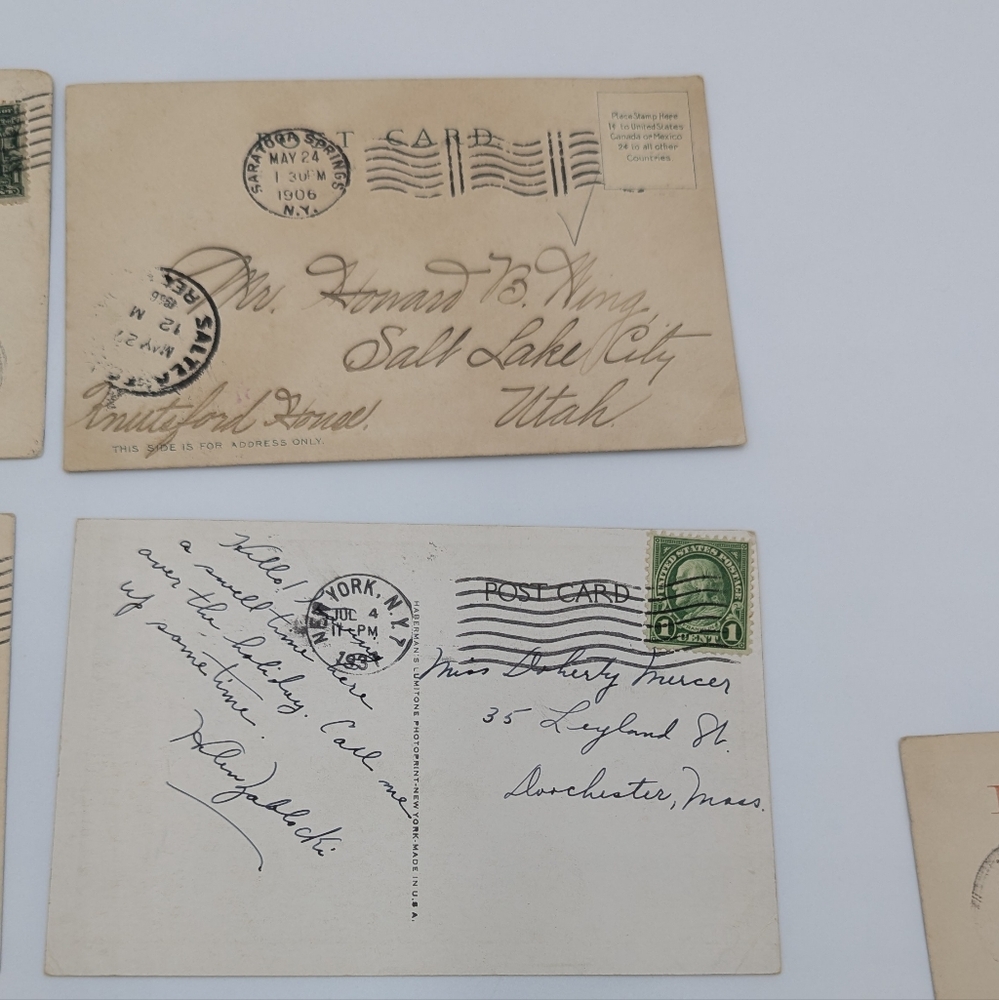 POST CARD
SARATOGA SPRINGS
MAY 24
1 30 PM
1906
N.Y.
Place Stamp Here
1¢ to United States
Canada or Mexico
2¢ in all other
Countries
Mr. Howard B. Wing,
Salt Lake City
Utah.
Knutsford House.
THIS SIDE IS FOR ADDRESS ONLY.
REC
12 M
MAY 2
SALT LA
Hello! Having
a swell time here
over the holiday. Call me
up sometime.
Helen Zablocki
NEW YORK, N.Y.
JUL 4
11 PM
193
HABERMAN'S LUMITONE PHOTOPRINT-NEW YORK-MADE IN U.S.A.
POST CARD
UNITED STATES POSTAGE
1 CENT 1
Miss Doherty Mercer
35 Leyland St.
Dorchester, Mass.